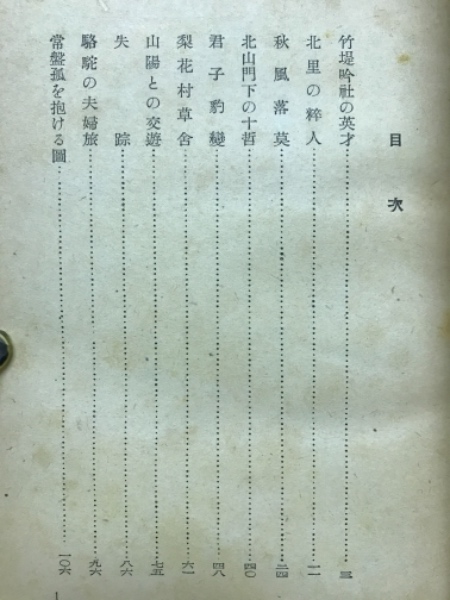 目次
竹堤吟社の英才 三
北里の粹人 一一
秋風落莫 二四
北山門下の十哲 四〇
君子豹變 四八
梨花村草舍 六一
山陽との交遊 七五
失踪 八六
駱駝の夫婦旅 九六
常盤孤を抱ける圖 一〇六
一